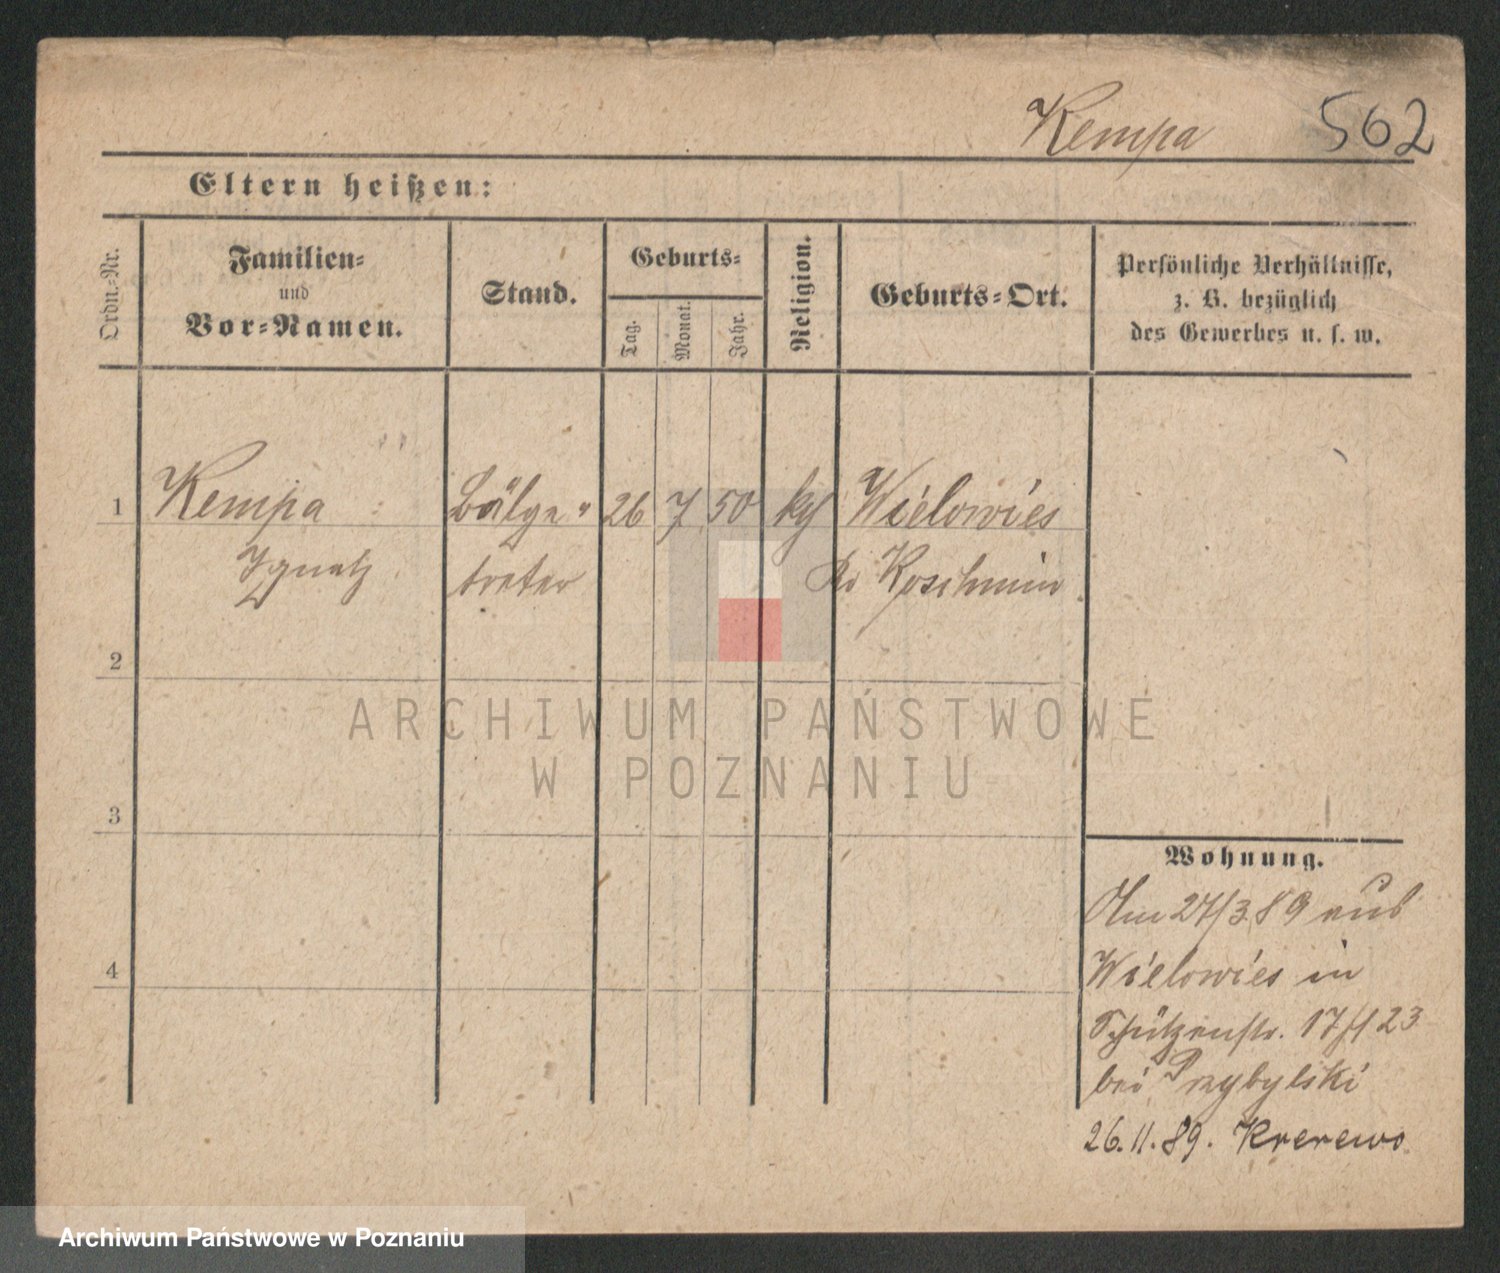 Kempa 562
Eltern heißen:
Ordn.-Nr.
Familien-
und
Vor-Namen.
Stand.
Geburts-
Tag.
Monat.
Jahr.
Religion.
Geburts-Ort.
Persönliche Verhältnisse,
z. B. bezüglich
des Gewerbes u. s. w.
1 Kempa Bälge- 26 7 50 kg Wielowies
Ignatz treter Kr Koschmin
2
ARCHIWUM PAŃSTWOWE
W POZNANIU
3
Wohnung.
Am 27/3 89 aus
4
Wielowies in
Schützenstr. 17 23
bei Przybylski
26.11.89.
Archiwum Państwowe w Poznaniu